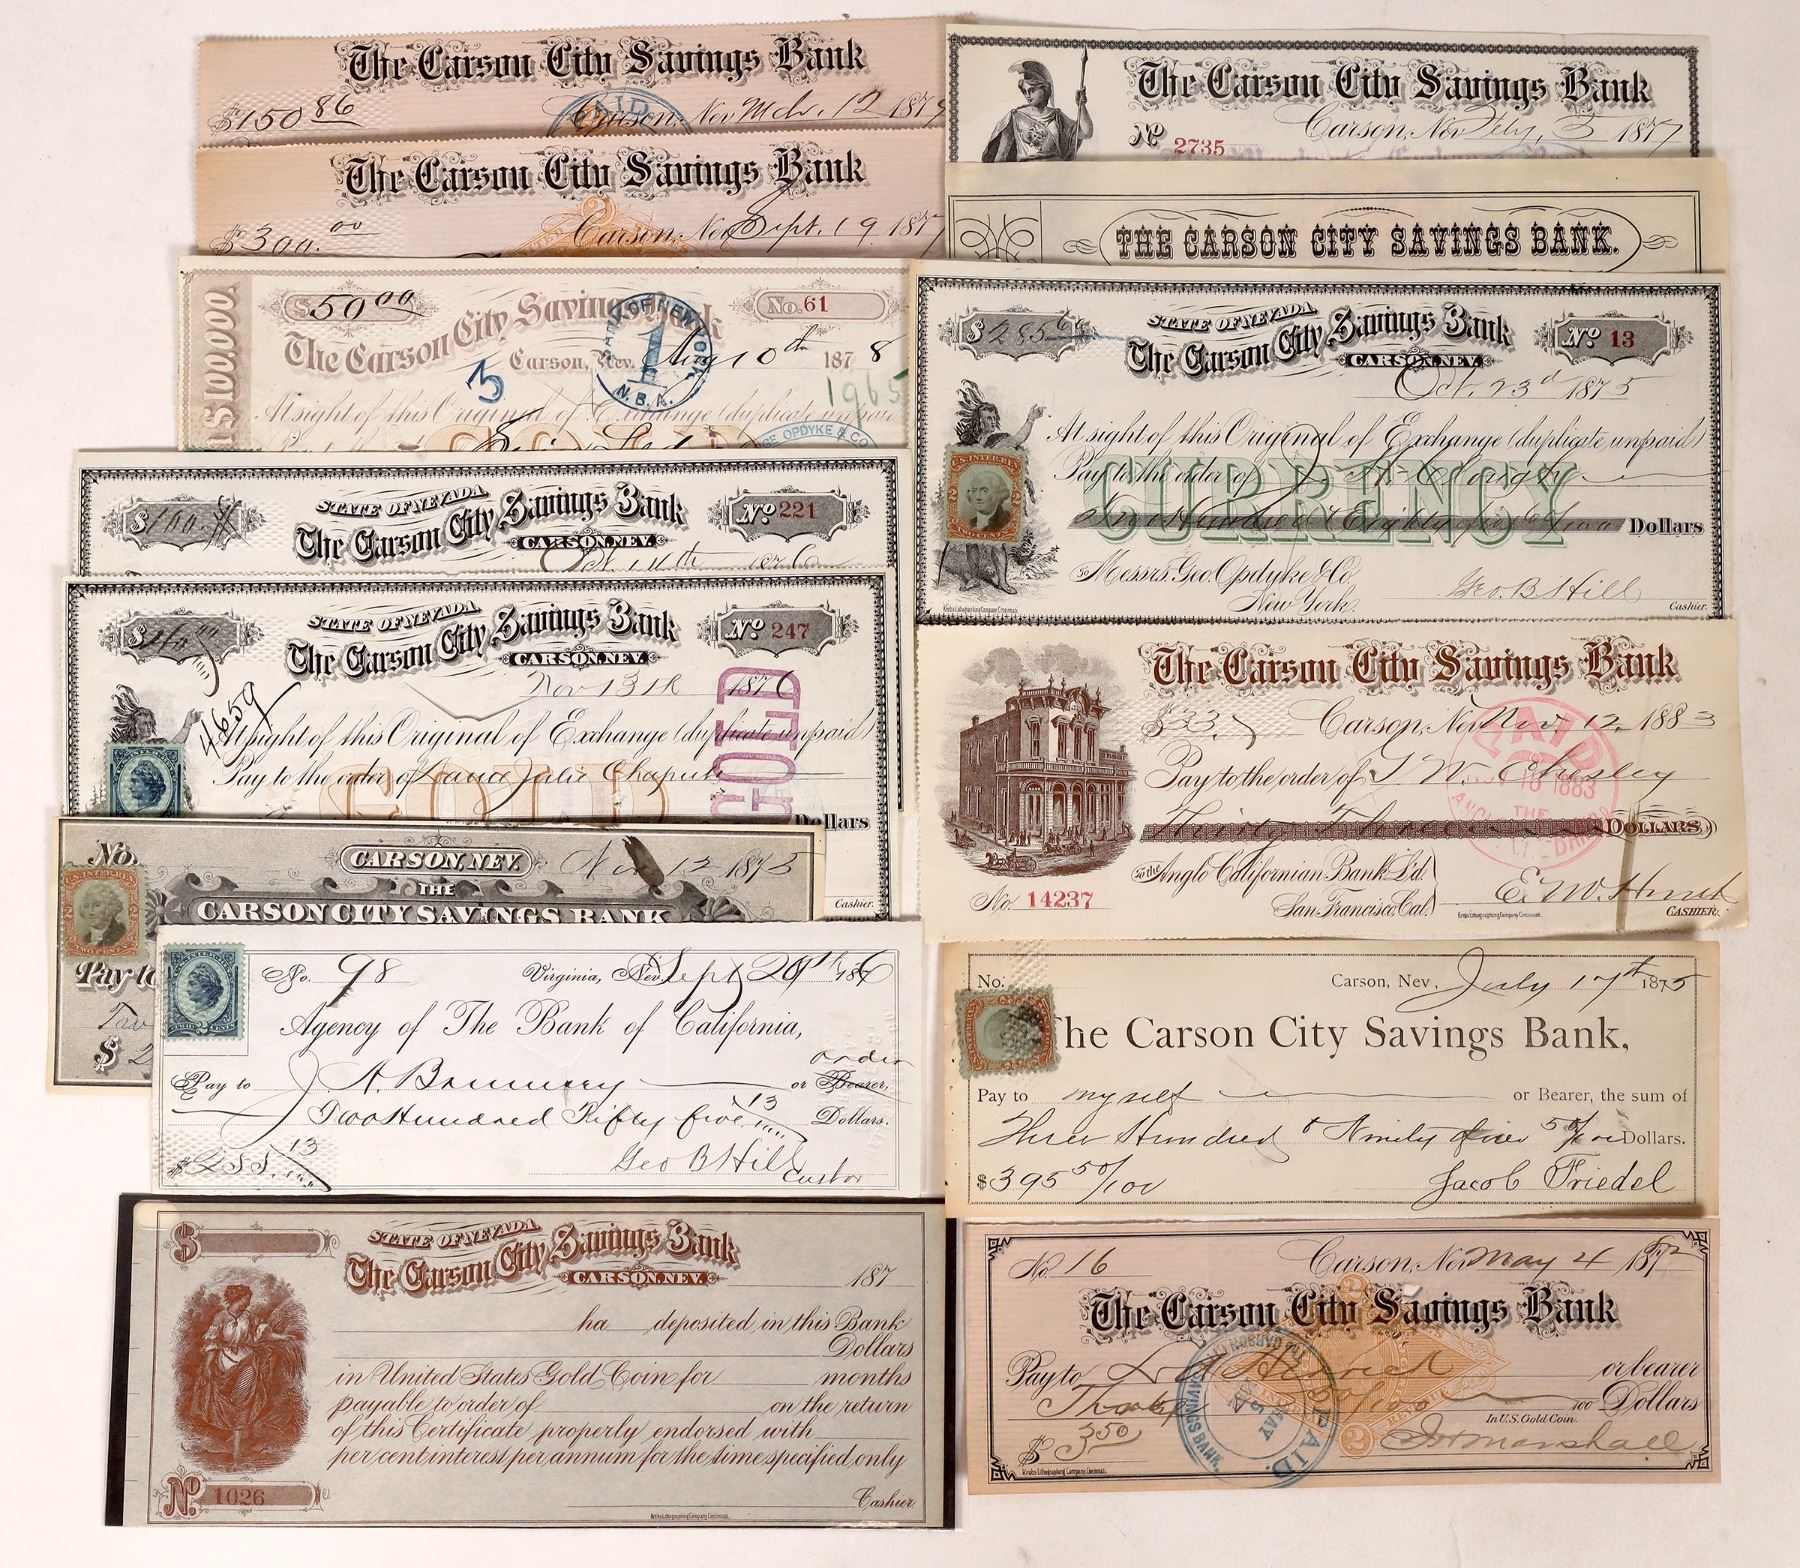 The Carson City Savings Bank
$150 86
Carson, Nev Mch. 12 187
PAID
The Carson City Savings Bank
$300.00
Carson, Nev Sept. 19 187
$100.000.
$50 00
The Carson City Savings Bank
No. 61
Carson, Nev. Aug 10th 1878
BANK OF NEW YORK
1
N.B.A.
3
1965
At sight of this Original of Exchange (duplicate unpaid
GEO OPDYKE & CO
STATE OF NEVADA
$100.
The Carson City Savings Bank
No 221
CARSON, NEV.
Oct 14th 1876
STATE OF NEVADA
The Carson City Savings Bank
No 247
CARSON, NEV.
Nov 13th 1876
4659
At sight of this Original of Exchange (duplicate unpaid)
Pay to the order of
GOLD
GOLD
Dollars
Cashier.
No.
CARSON, NEV.
Nov 12 1875
THE
CARSON CITY SAVINGS BANK
Pay to
$ 2
U.S. INTER. REV.
No. 98
Virginia, Nev. Sept 20th 1876
Agency of The Bank of California,
order
Pay to J A. Bonnery or Bearer,
Two Hundred Fifty five 13/100 Dollars.
$255. 13/100
Geo B Hill
Cashr
STATE OF NEVADA
$
The Carson City Savings Bank
CARSON, NEV.
187
ha deposited in this Bank
Dollars
in United States Gold Coin for months
payable to order of on the return
of this Certificate properly endorsed with
per cent interest per annum for the time specified only
No 1026
Cashier.
Krebs Lithographing Company Cincinnati.
The Carson City Savings Bank
Carson, Nev Feby. 3 1877
No 2735
THE CARSON CITY SAVINGS BANK.
STATE OF NEVADA
The Carson City Savings Bank
No 13
CARSON, NEV.
Oct. 23d 1875
At sight of this Original of Exchange (duplicate unpaid)
Pay to the order of
CURRENCY
Two Hundred & Eighty Dollars
To Messrs. Geo. Opdyke & Co.
New York.
Geo. B Hill
Cashier.
Krebs Lithographing Company Cincinnati.
U.S. INTER. REV.
The Carson City Savings Bank
$33.
Carson, Nev Nov 12 1883
Pay to the order of T. W. Chesley
Thirty Three DOLLARS
BANK
PAID
1883
To the Anglo Californian Bank Ld
San Francisco, Cal.
No. 14237
CASHIER.
Krebs Lithographing Company Cincinnati.
No.
Carson, Nev, July 17th 1875
The Carson City Savings Bank,
Pay to myself or Bearer, the sum of
Three Hundred & Ninety five 50/100 Dollars.
$395 50/100
Jacob Friedel
No. 16
Carson, Nev May 4 1882
The Carson City Savings Bank
Pay to or bearer
Three 50/100 Dollars
In U.S. Gold Coin.
$ 3 50
THE CARSON CITY SAVINGS BANK.
PAID.
MAY
Jos Marshall
Krebs Lithographing Company Cincinnati.